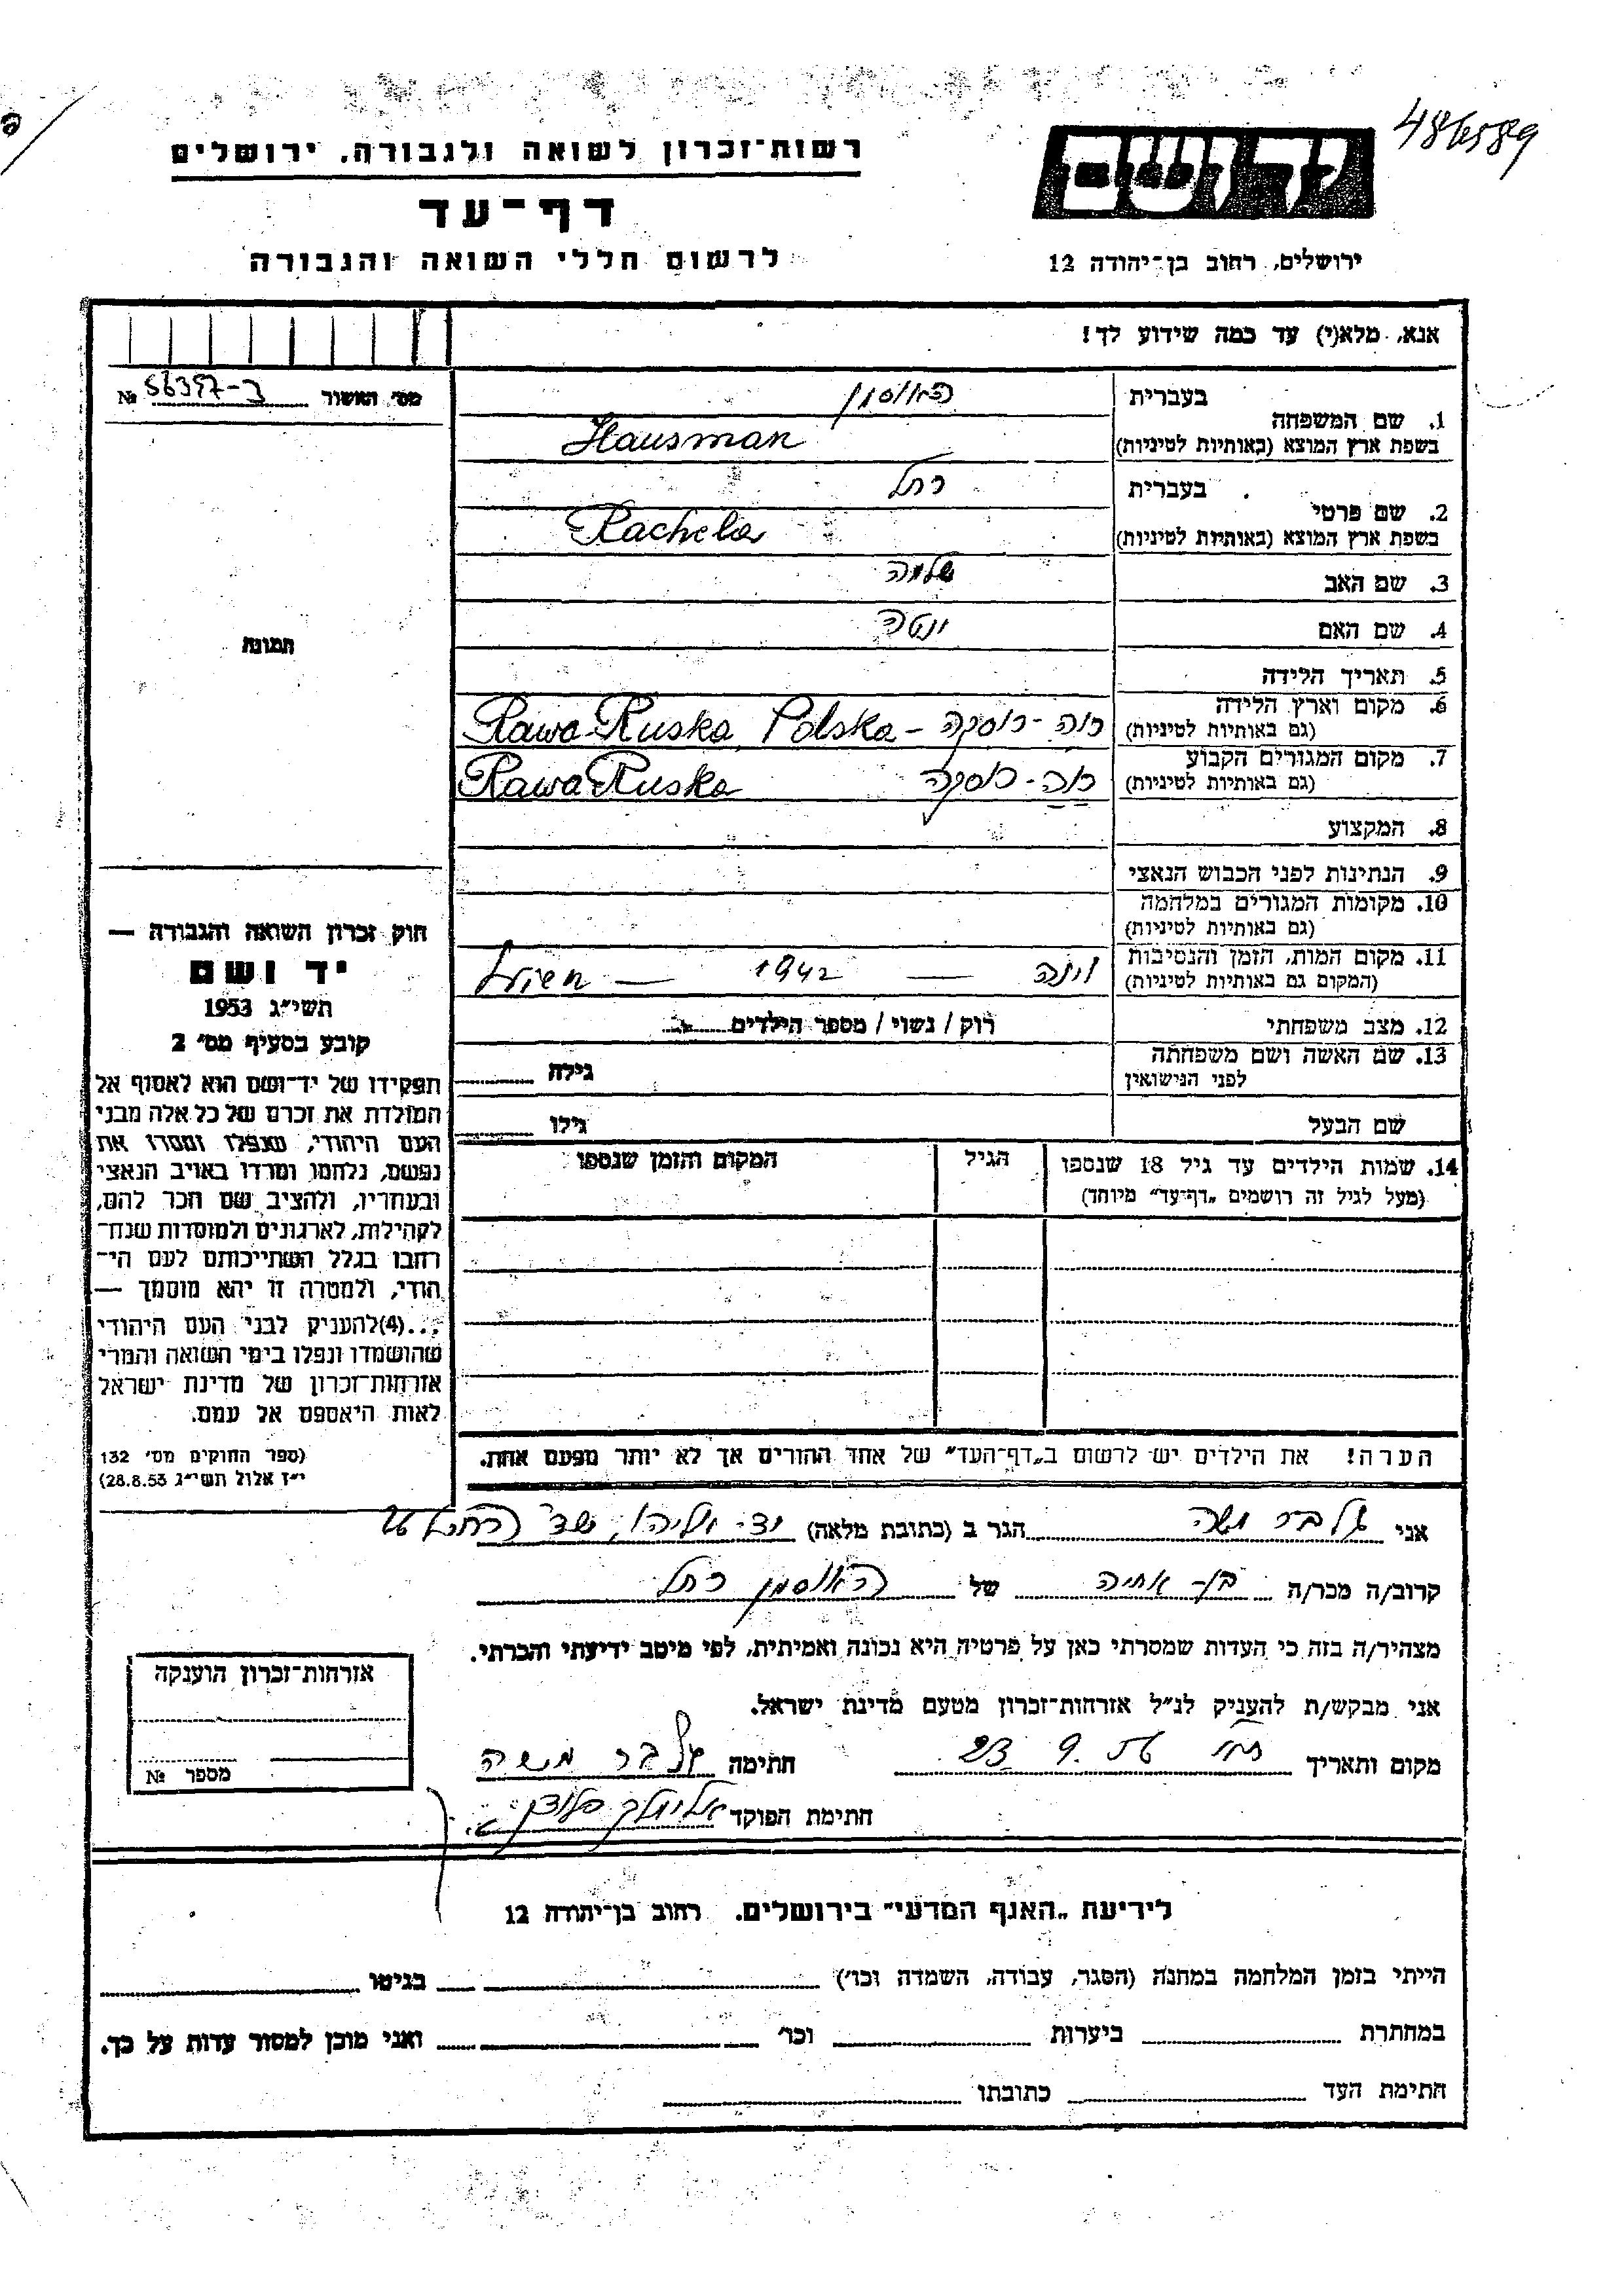 486589
רשות־זכרון לשואה ולגבורה, ירושלים
דף־עד
לרשום חללי השואה והגבורה
ידושם
ירושלים, רחוב בן־יהודה 12
אנא, מלא(י) עד כמה שידוע לך!
מס׳ האשור № 56397-ב
תמונה
בעברית האוסמן
1. שם המשפחה
בשפת ארץ המוצא (באותיות לטיניות) Hausman
בעברית רחל
2. שם פרטי
בשפת ארץ המוצא (באותיות לטיניות) Rachela
3. שם האב שלמה
4. שם האם יוטה
5. תאריך הלידה
6. מקום וארץ הלידה
(גם באותיות לטיניות) רוה-רוסקה - Rawa-Ruska, Polska
7. מקום המגורים הקבוע
(גם באותיות לטיניות) רוה-רוסקה Rawa Ruska
8. המקצוע
9. הנתינות לפני הכבוש הנאצי
10. מקומות המגורים במלחמה
(גם באותיות לטיניות)
11. מקום המות, הזמן והנסיבות
(המקום גם באותיות לטיניות) — 1942 —
12. מצב משפחתי רוק / נשוי / מספר הילדים
13. שם האשה ושם משפחתה
לפני הנישואין גילה
שם הבעל גילו
14. שמות הילדים עד גיל 18 שנספו הגיל המקום והזמן שנספו
(מעל לגיל זה רושמים „דף־עד” מיוחד)
הערה! את הילדים יש לרשום ב„דף־העד” של אחד ההורים אך לא יותר מפעם אחת.
חוק זכרון השואה והגבורה —
יד ושם
תשי״ג 1953
קובע בסעיף מס׳ 2
תפקידו של יד־ושם הוא לאסוף אל
המולדת את זכרם של כל אלה מבני
העם היהודי, שנפלו ומסרו את
נפשם, נלחמו ומרדו באויב הנאצי
ובעוזריו, ולהציב שם וזכר להם,
לקהילות, לארגונים ולמוסדות שנח־
רבו בגלל השתייכותם לעם הי־
הודי, ולמטרה זו יהא מוסמך —
...(4)להעניק לבני העם היהודי
שהושמדו ונפלו בימי השואה והמרי
אזרחות־זכרון של מדינת ישראל
לאות היאספם אל עמם.
(ספר החוקים מס׳ 132
י״ז אלול תשי״ג 28.8.53)
אני משה הגר ב (כתובת מלאה) אליהו
קרוב/ה מכר/ה של האוסמן רחל
מצהיר/ה בזה כי העדות שמסרתי כאן על פרטיה היא נכונה ואמיתית, לפי מיטב ידיעתי והכרתי.
אני מבקש/ת להעניק לנ״ל אזרחות־זכרון מטעם מדינת ישראל.
מקום ותאריך 23 9 56 חתימה משה
חתימת הפוקד
אזרחות־זכרון הוענקה
מספר №
לידיעת „האגף המדעי” בירושלים. רחוב בן־יהודה 12
הייתי בזמן המלחמה במחנה (הסגר, עבודה, השמדה וכו׳) בגיטו
במחתרת ביערות וכו׳ ואני מוכן למסור עדות על כך.
חתימת העד כתובתו